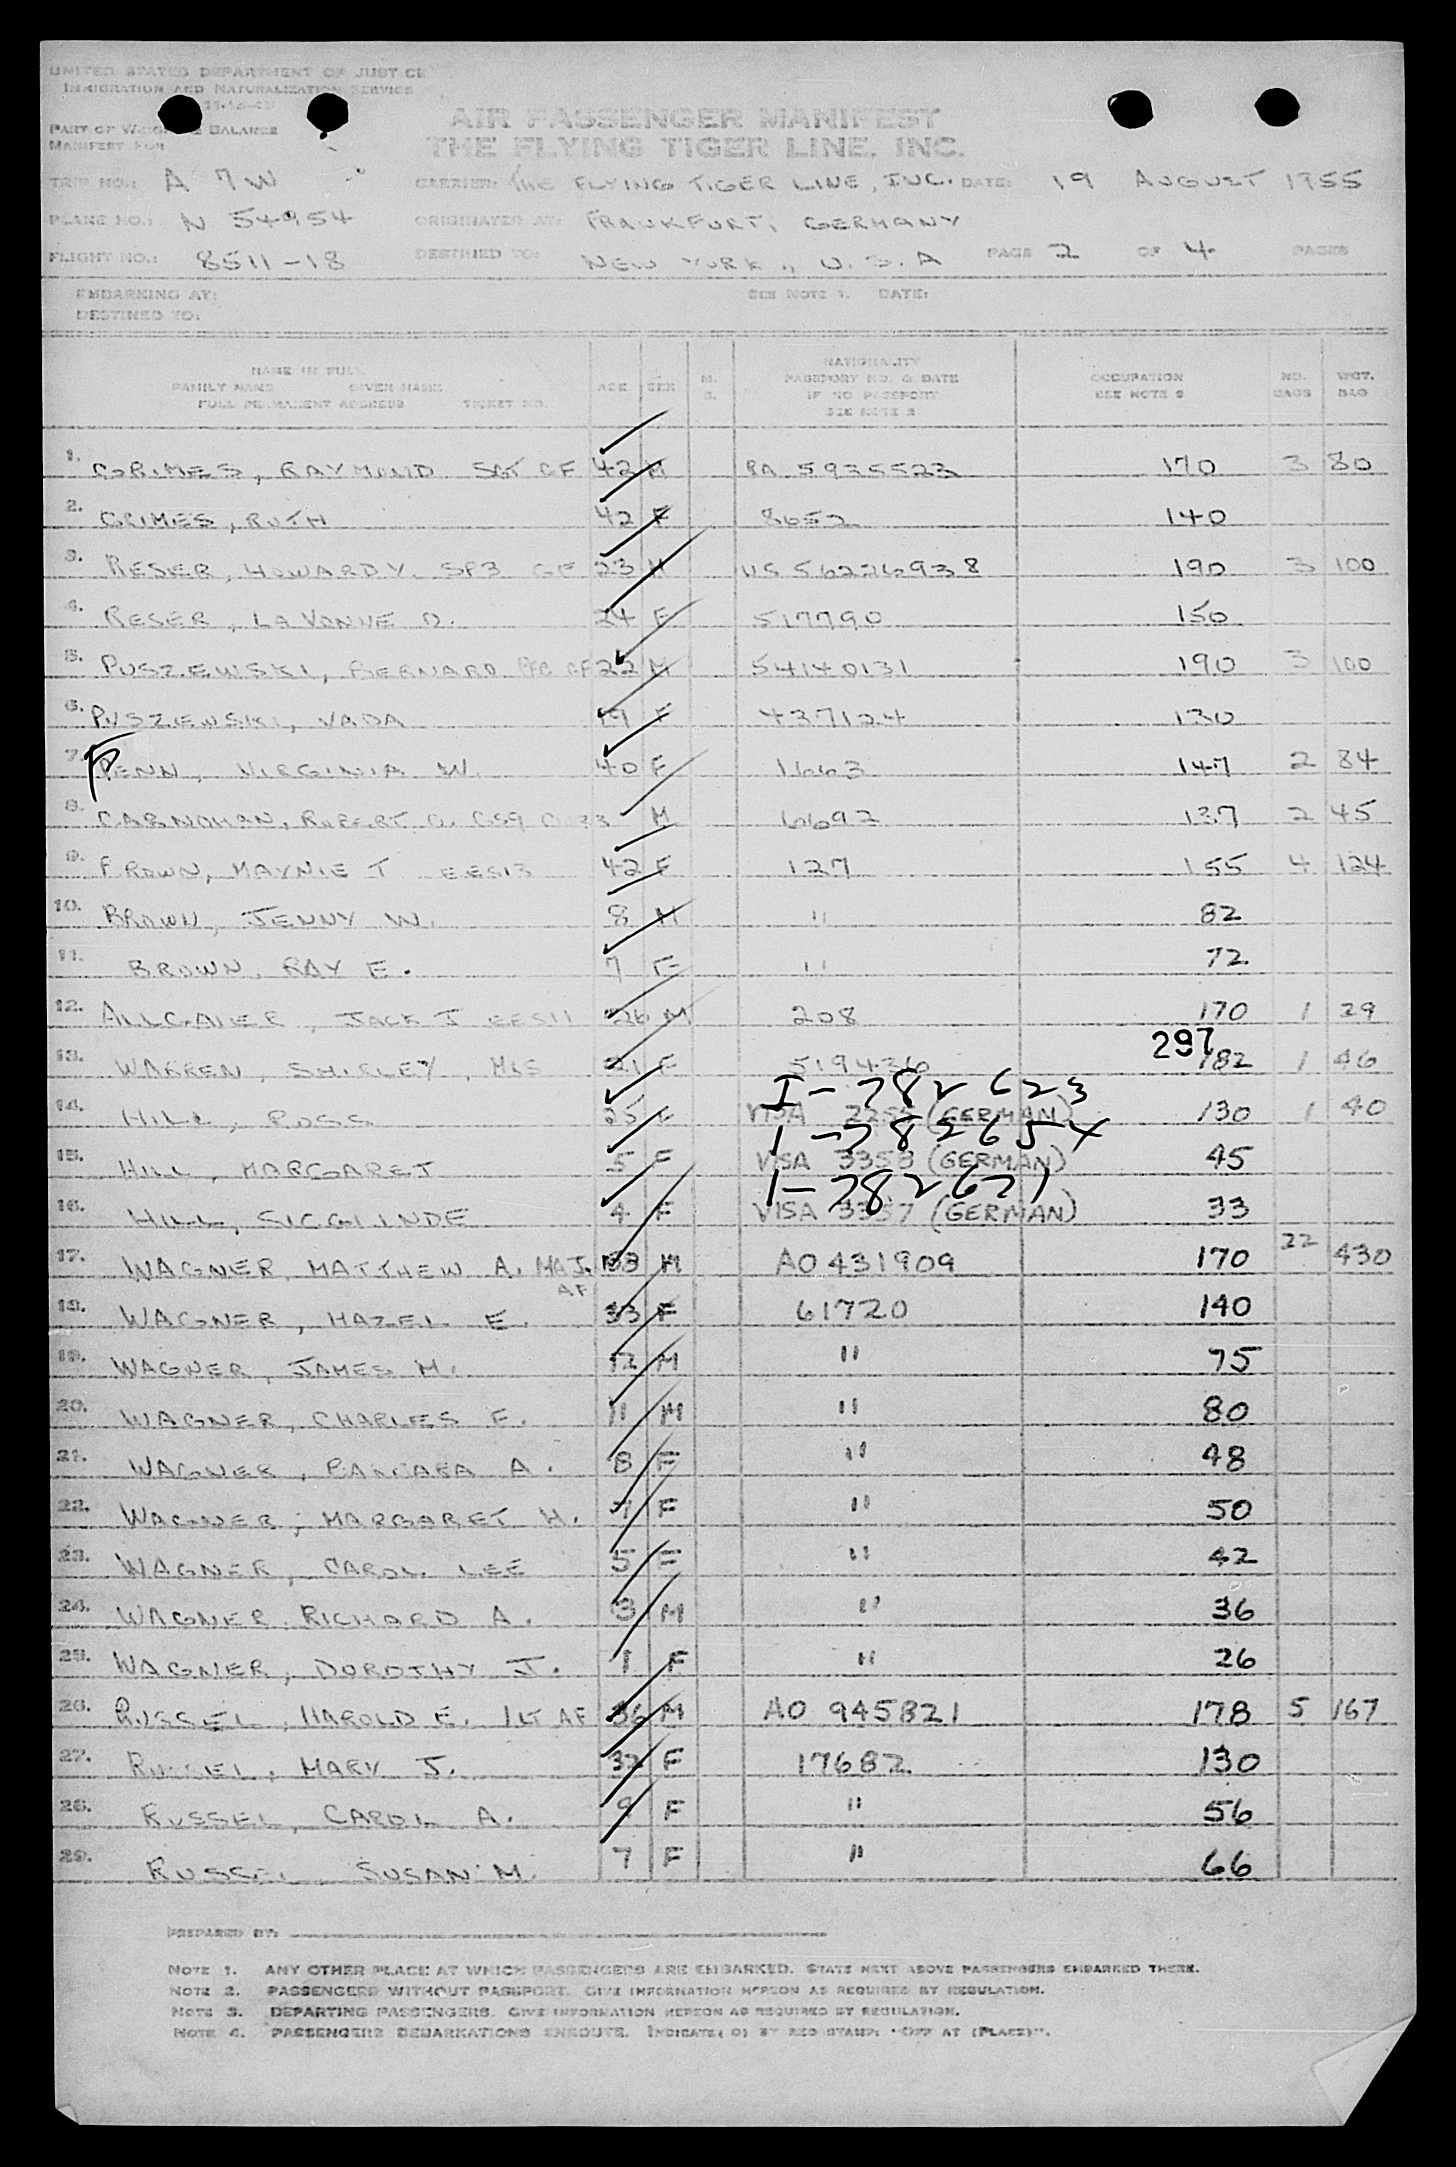 UNITED STATES DEPARTMENT OF JUSTICE
IMMIGRATION AND NATURALIZATION SERVICE
PART OF WEIGHT & BALANCE
MANIFEST FOR
AIR PASSENGER MANIFEST
THE FLYING TIGER LINE, INC.
TRIP NO.: A 7W CARRIER: THE FLYING TIGER LINE, INC. DATE: 19 AUGUST 1955
PLANE NO.: N 54954 ORIGINATED AT: FRANKFURT, GERMANY
FLIGHT NO.: 8511-18 DESTINED TO: NEW YORK., U.S.A PAGE 2 OF 4 PAGES
EMBARKING AT: SEE NOTE 1. DATE:
DESTINED TO:
NAME IN FULL
FAMILY NAME GIVEN NAME
FULL PERMANENT ADDRESS TICKET NO. AGE SEX M. S. NATIONALITY PASSPORT NO. & DATE IF NO PASSPORT SEE NOTE 2 OCCUPATION SEE NOTE 3 NO. BAGS WGT. BAG
1. GRIMES, RAYMOND SGT GF 42 M RA 5935523 170 3 80
2. GRIMES, RUTH 42 F 8652 140
3. RESER, HOWARD V. SP3 GF 23 M US 56226938 190 3 100
4. RESER, LAVONNE D. 24 F 517790 150
5. PUSZEWSKI, BERNARD PFC GF 22 M 54140131 190 3 100
6. PUSZEWSKI, VADA 19 F 437124 130
7. PENN, VIRGINIA W. 40 F 1663 147 2 84
8. CARNOHAN, ROBERT O. GS9 M 6692 137 2 45
9. BROWN, MAYNIE T EES13 42 F 127 155 4 124
10. BROWN, JENNY W. 8 M " 82
11. BROWN, RAY E. 7 F " 72
12. ALLGAIER, JACK J EES11 26 M 208 170 1 29
297
13. WARREN, SHIRLEY, MRS 21 F 519436 182 1 46
I-782623
14. HILL, ROSS 25 F VISA (GERMAN) 130 1 40
1-782654
15. HILL, MARGARET 5 F VISA 3358 (GERMAN) 45
1-782621
16. HILL, SIGGLINDE 4 F VISA 3357 (GERMAN) 33
17. WAGNER, MATTHEW A. MAJ. AF 33 M AO 431909 170 22 430
18. WAGNER, HAZEL E. 33 F 61720 140
19. WAGNER, JAMES M. 12 M " 75
20. WAGNER, CHARLES E. 11 M " 80
21. WAGNER, BARBARA A. 8 F " 48
22. WAGNER, MARGARET H. 7 F " 50
23. WAGNER, CAROL LEE 5 F " 42
24. WAGNER, RICHARD A. 3 M " 36
25. WAGNER, DOROTHY J. 1 F " 26
26. RUSSEL, HAROLD E. 1LT AF 36 M AO 945821 178 5 167
27. RUSSEL, MARY J. 32 F 17682 130
28. RUSSEL, CAROL A. 9 F " 56
29. RUSSEL, SUSAN M. 7 F " 66
PREPARED BY:
NOTE 1. ANY OTHER PLACE AT WHICH PASSENGERS ARE EMBARKED. STATE NEXT ABOVE PASSENGERS EMBARKED THERE.
NOTE 2. PASSENGERS WITHOUT PASSPORT. GIVE INFORMATION HEREON AS REQUIRED BY REGULATION.
NOTE 3. DEPARTING PASSENGERS. GIVE INFORMATION HEREON AS REQUIRED BY REGULATION.
NOTE 4. PASSENGERS DEBARKATIONS ENROUTE. INDICATE( D) BY RED STAMP: "OFF AT (PLACE)".